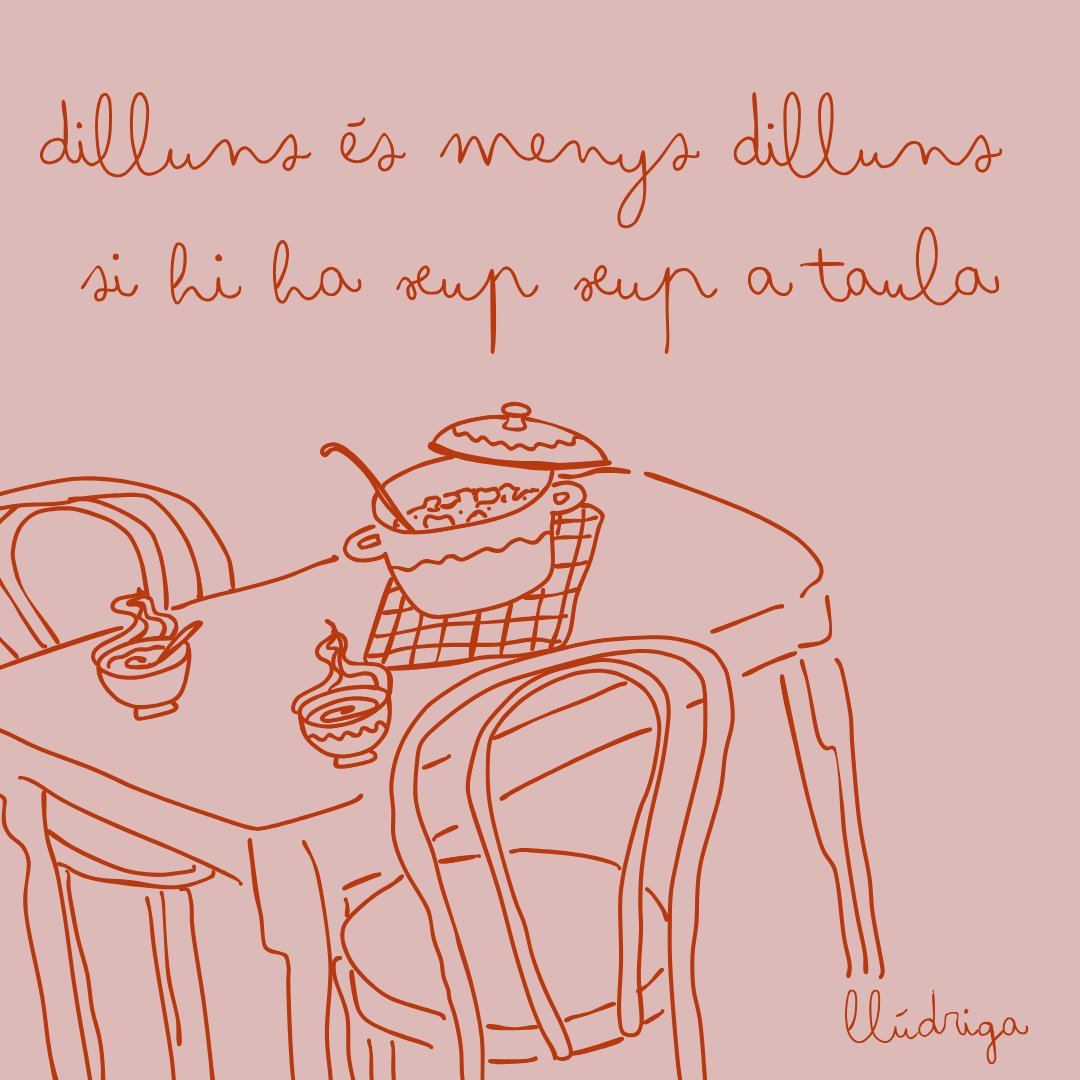 dilluns és menys dilluns
si hi ha xup xup a taula
llúdriga